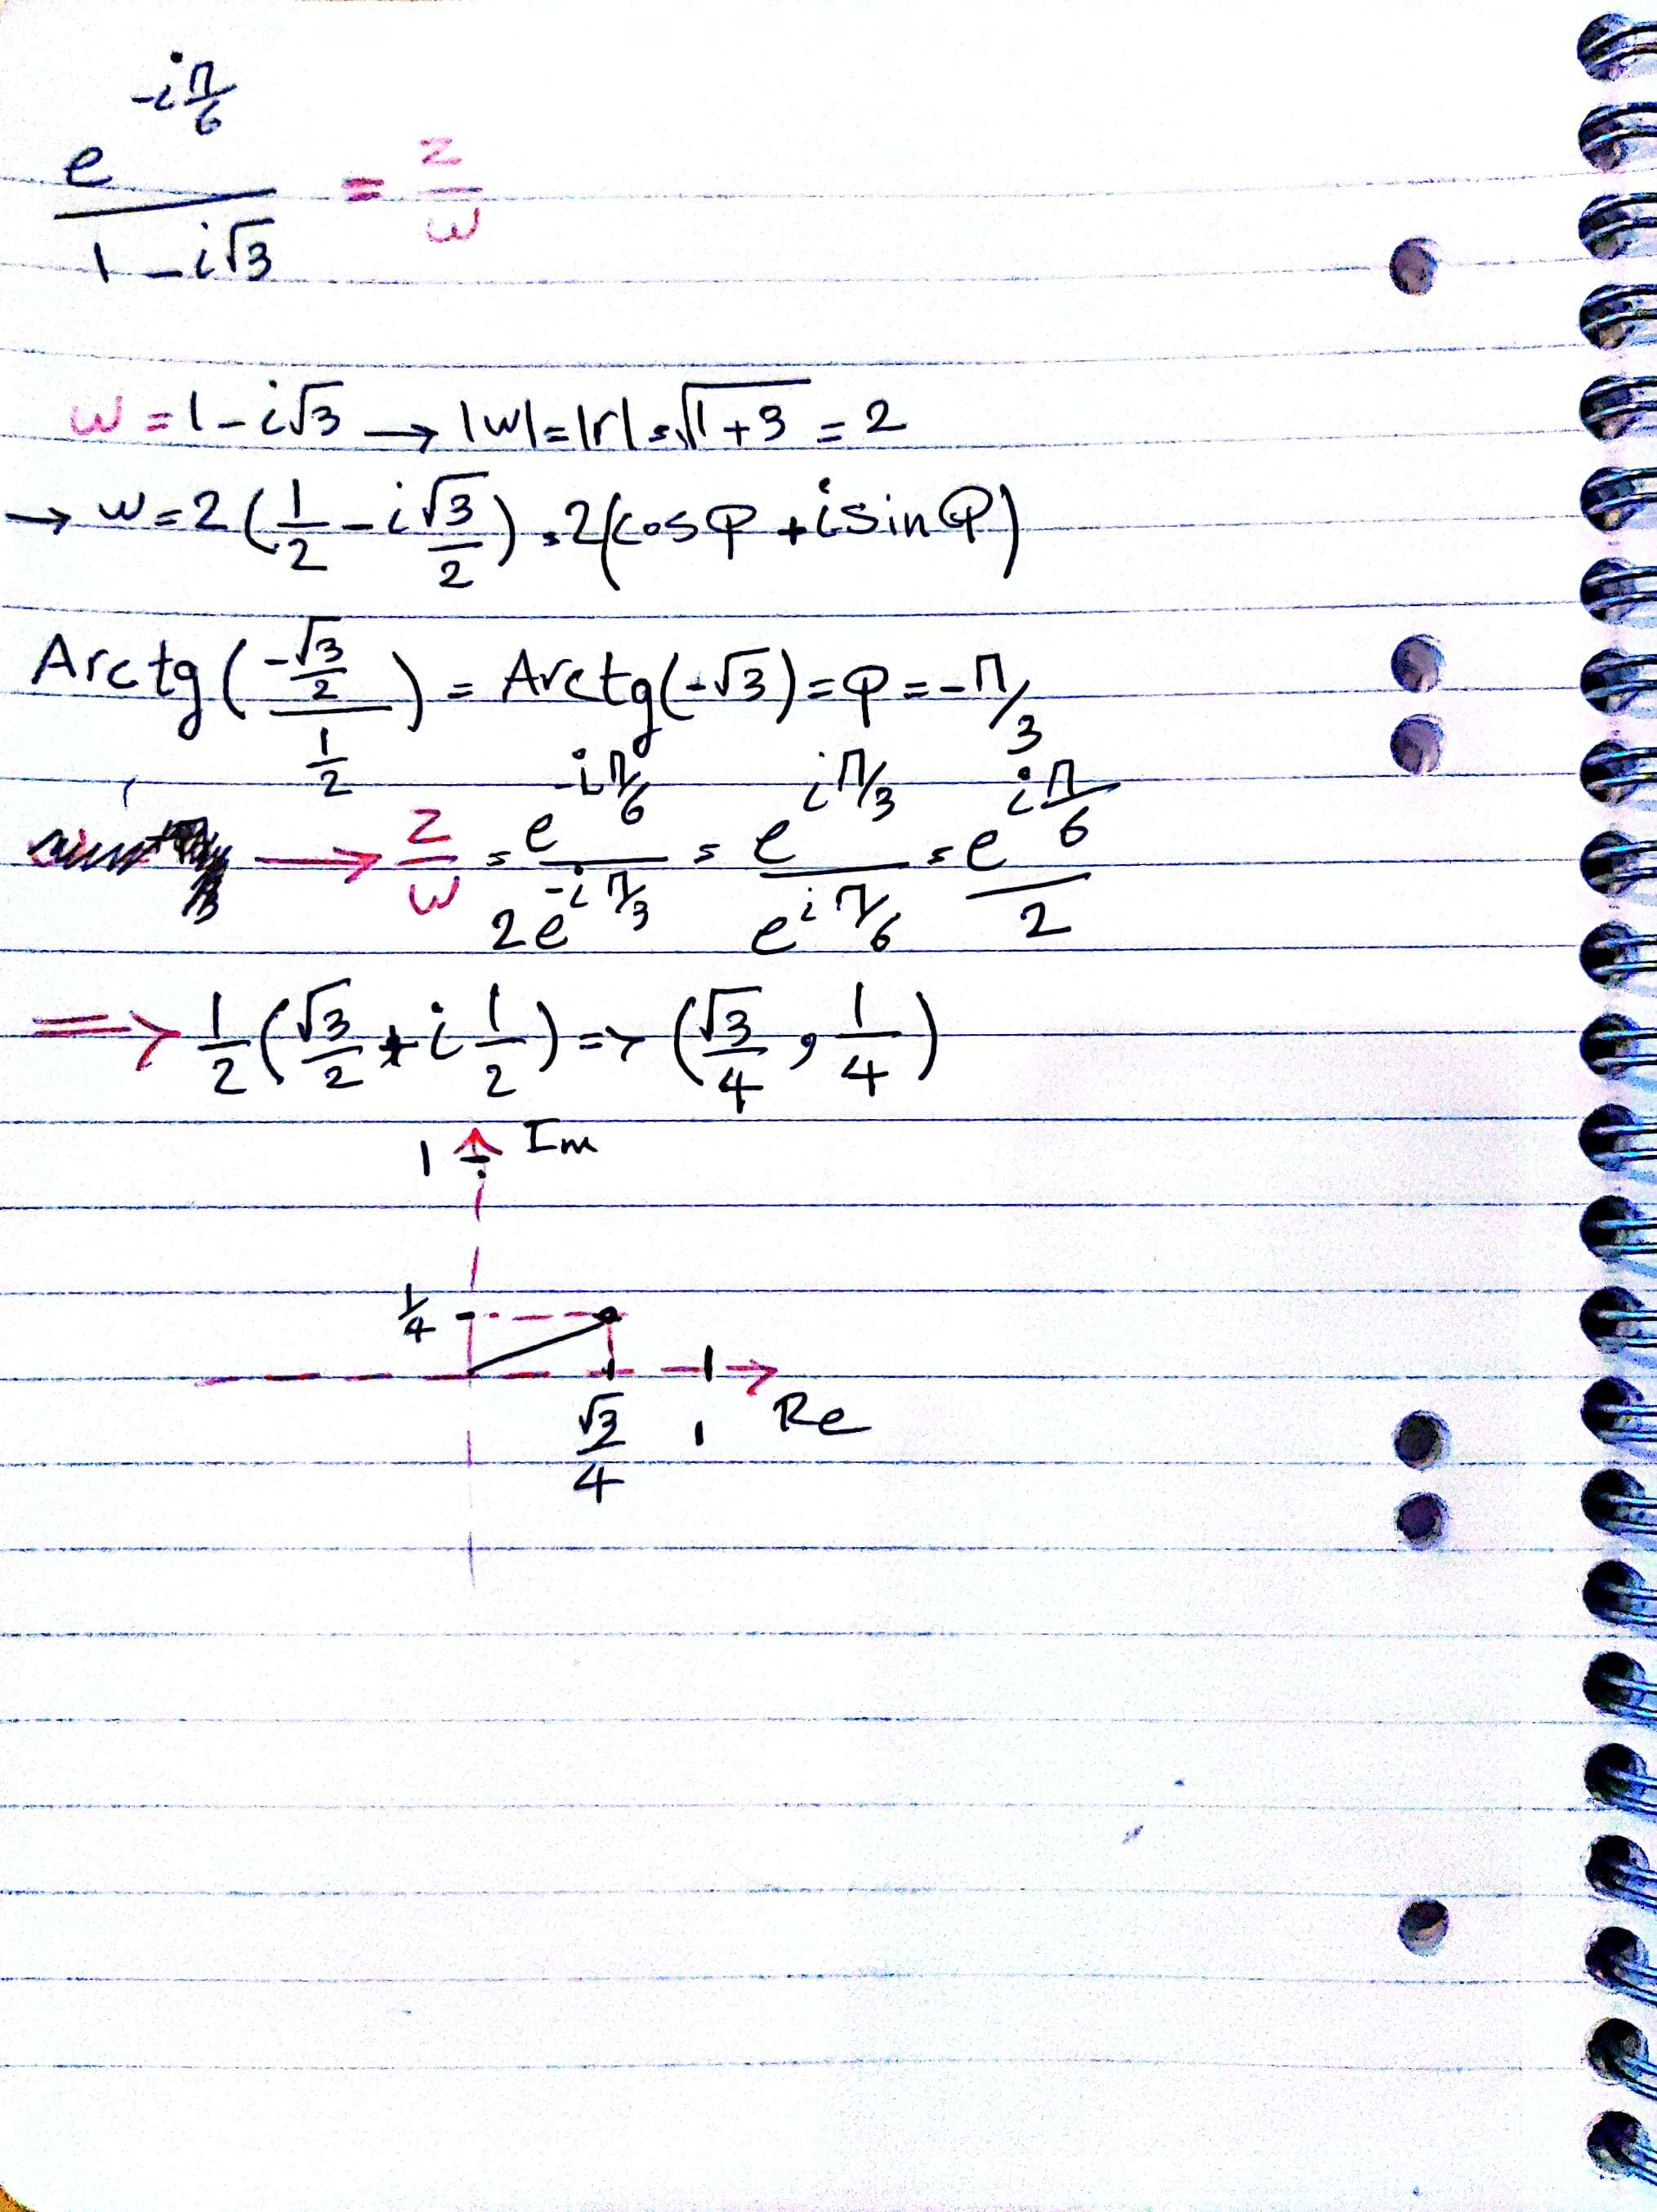 e^(-iπ/6) / (1 - i√3) = z/w
w = 1 - i√3 → |w| = |r| = √(1+3) = 2
→ w = 2(1/2 - i√3/2) = 2(cosφ + i sinφ)
Arctg((-√3/2)/(1/2)) = Arctg(-√3) = φ = -π/3
→ z/w = e^(-iπ/6) / 2e^(-iπ/3) = e^(iπ/3) / e^(iπ/6) = e^(iπ/6) / 2
⇒ 1/2(√3/2 + i 1/2) => (√3/4, 1/4)
1 Im
1/4
√3/4 1 Re